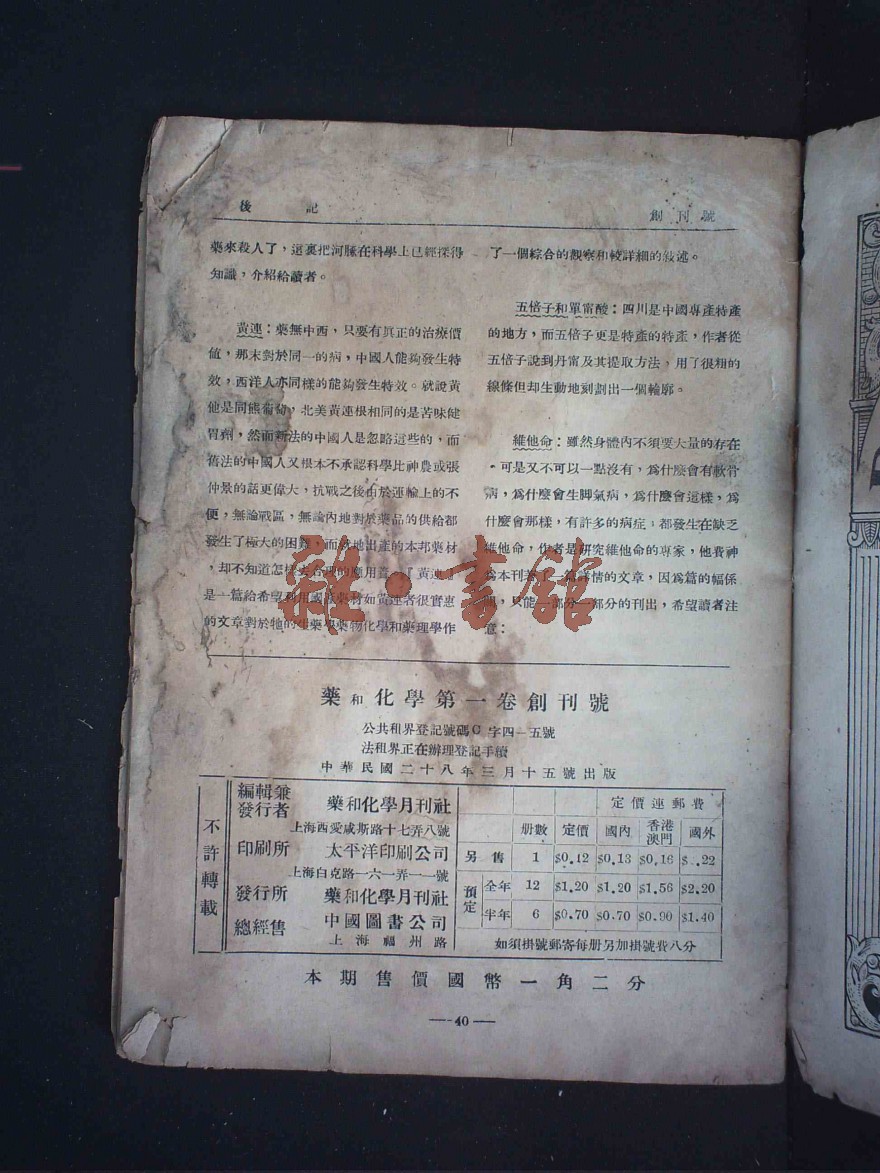 後記
創刊號
藥來殺人了，這裏把河豚在科學上已經探得
知識，介紹給讀者。
黃連：藥無中西，只要有真正的治療價
值，那末對於同一的病，中國人能夠發生特
效，西洋人亦同樣的能夠發生特效。就說黃
他是同熊葡萄，北美黃連根相同的是苦味健
胃劑，然而新法的中國人是忽略這些的，而
舊法的中國人又根本不承認科學比神農或張
仲景的話更偉大，抗戰之後由於運輸上的不
便，無論戰區，無論內地對於藥品的供給都
發生了極大的困難，而就地出產的本邦藥材
，却不知道怎樣去合理的應用着，『黃連』
是一篇給希望利用國產藥材如黃連者很實惠
的文章對於牠的生藥學藥物化學和藥理學作
了一個綜合的觀察和較詳細的敍述。
五倍子和單甯酸：四川是中國專產特產
的地方，而五倍子更是特產的特產，作者從
五倍子說到丹甯及其提取方法，用了很粗的
線條但却生動地刻劃出一個輪廓。
維他命：雖然身體內不須要大量的存在
，可是又不可以一點沒有，爲什麼會有軟骨
病，爲什麼會生脚氣病，爲什麼會這樣，爲
什麼會那樣，有許多的病症；都發生在缺乏
維他命，作者是研究維他命的專家，他費神
爲本刊著了一篇詳情的文章，因爲篇的幅係
，只能一部分一部分的刊出，希望讀者注
意：
藥和化學第一卷創刊號
公共租界登記號碼C字四一五號
法租界正在辦理登記手續
中華民國二十八年三月十五號出版
不許轉載
編輯兼發行者 藥和化學月刊社
上海西愛咸斯路十七弄八號
印刷所 太平洋印刷公司
上海白克路一六一弄一一號
發行所 藥和化學月刊社
總經售 中國圖書公司
上海福州路
定價連郵費
册數 定價 國內 香港澳門 國外
另售 1 $0.12 $0.13 $0.16 $.22
預定 全年 12 $1.20 $1.20 $1.56 $2.20
半年 6 $0.70 $0.70 $0.90 $1.40
如須掛號郵寄每册另加掛號費八分
本期售價國幣一角二分
—40—
雜·書館